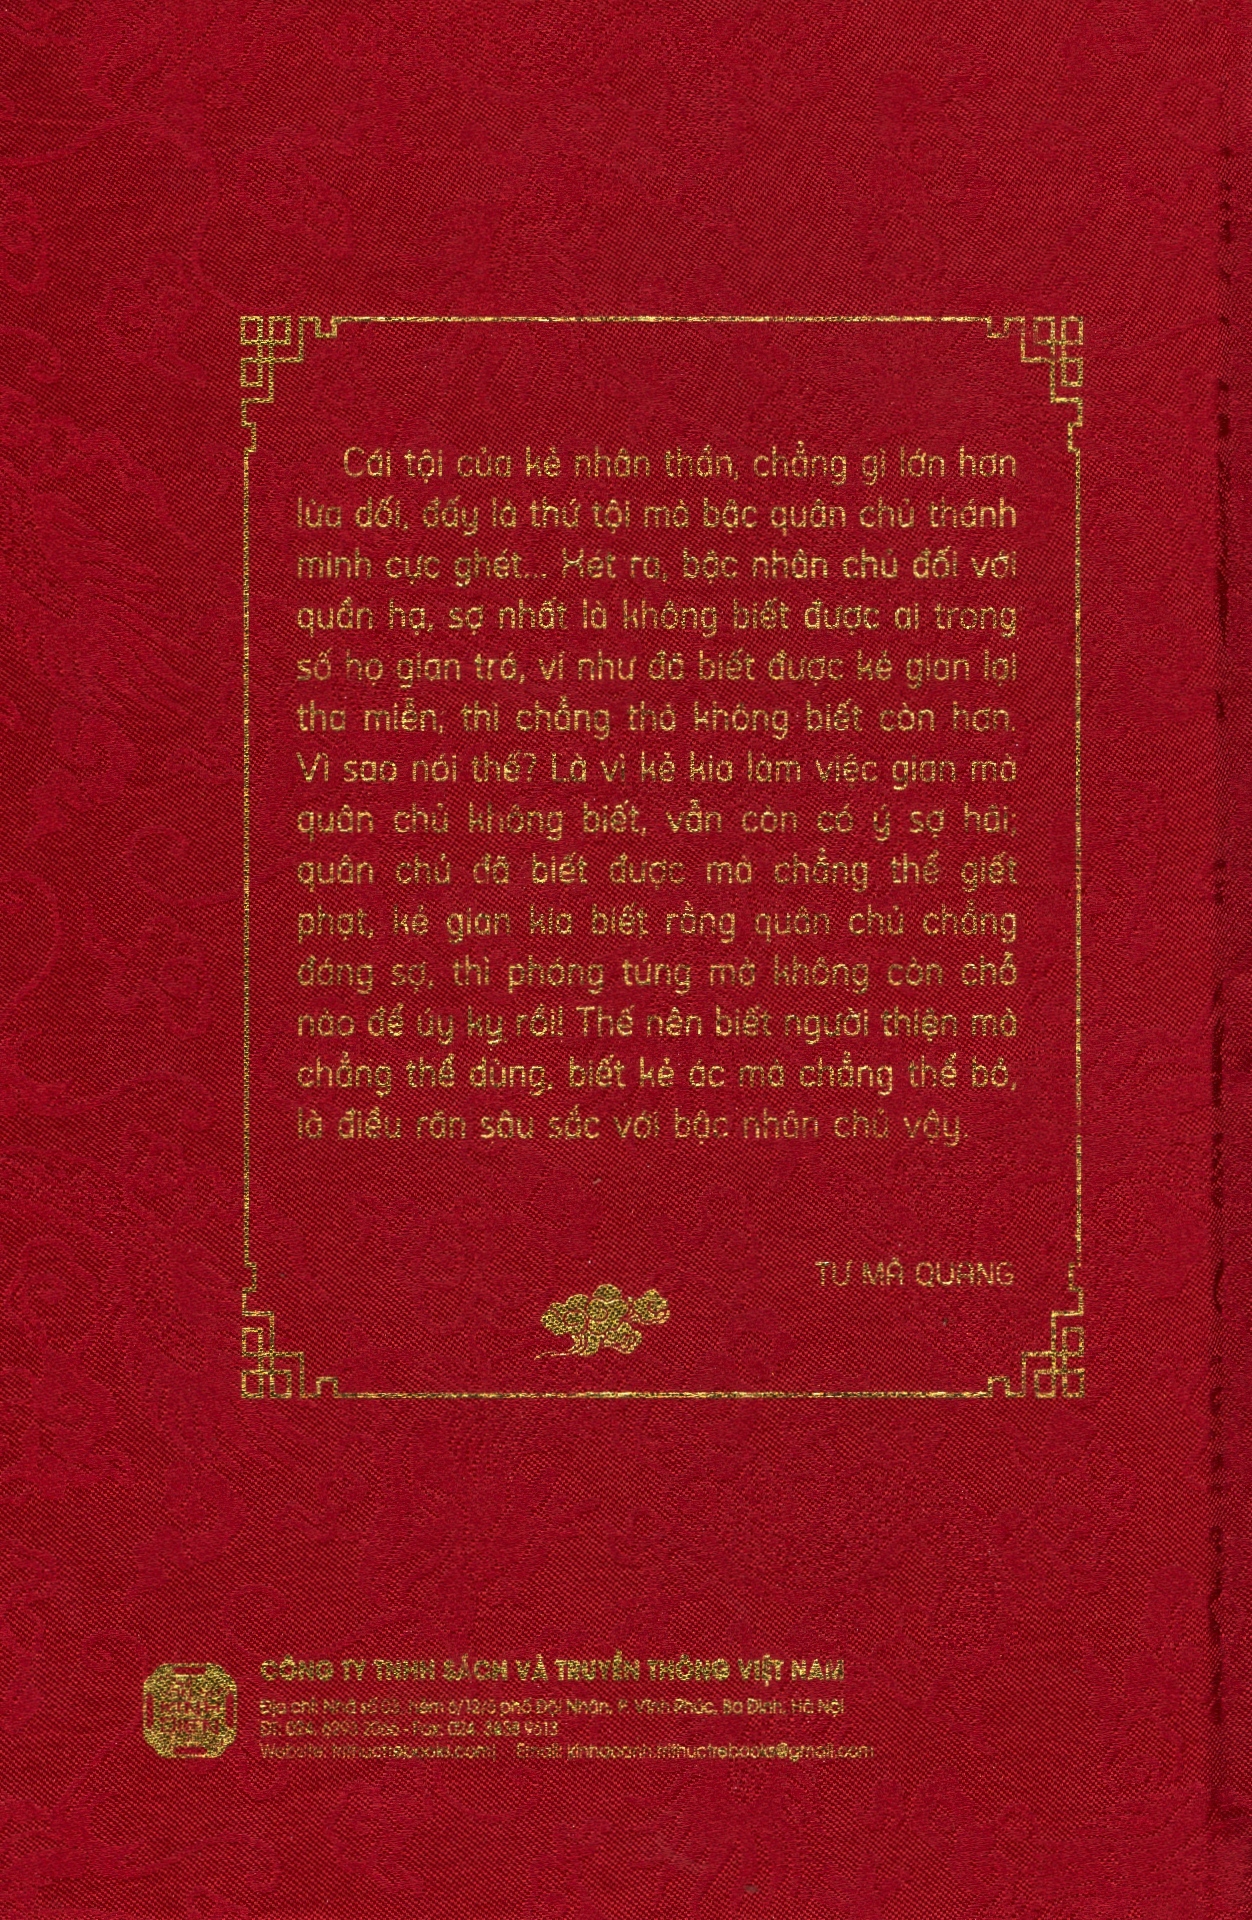 Cái tội của kẻ nhân thần, chẳng gì lớn hơn
lừa dối, đấy là thứ tội mà bậc quân chủ thánh
minh cực ghét... Xét ra, bậc nhân chủ đối với
quần hạ, sợ nhất là không biết được ai trong
số họ gian trá, ví như đã biết được kẻ gian lại
tha miễn, thì chẳng thà không biết còn hơn.
Vì sao nói thế? Là vì kẻ kia làm việc gian mà
quân chủ không biết, vẫn còn có ý sợ hãi;
quân chủ đã biết được mà chẳng thể giết
phạt, kẻ gian kia biết rằng quân chủ chẳng
đáng sợ, thì phóng túng mà không còn chỗ
nào để úy kỵ rồi! Thế nên biết người thiện mà
chẳng thể dùng, biết kẻ ác mà chẳng thể bỏ,
là điều răn sâu sắc với bậc nhân chủ vậy.
TƯ MÃ QUANG
CÔNG TY TNHH SÁCH VÀ TRUYỀN THÔNG VIỆT NAM
Địa chỉ: Nhà số 03, hẻm 6/12/6 phố Đội Nhân, P. Vĩnh Phúc, Ba Đình, Hà Nội
ĐT: 024. 6293 2066 - Fax: 024. 3858 9613
Website: trithuctrebooks.com| Email: kinhdoanh.trithuctrebooks@gmail.com